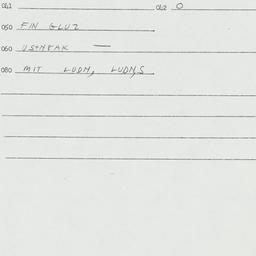 041 042 0
050 FIN GLUZ
060 USTNPAK —
080 MIT LUDM, LUDM,S